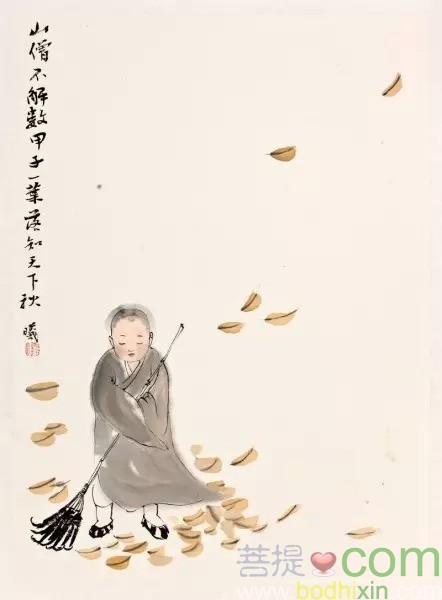 山僧不解數甲子一葉落知天下秋
曦
菩提 com
www.bodhixin.com